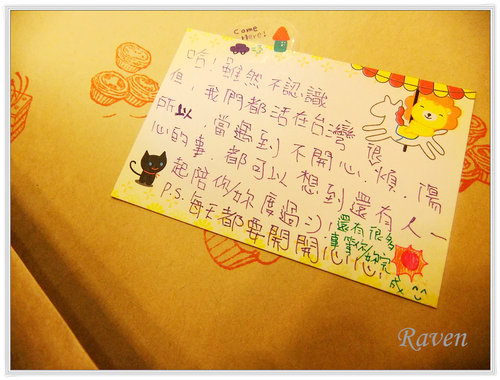 Come
Here!
哈!雖然不認識
但,我們都活在台灣 很
所以,當遇到不開心.煩.傷
心的事.都可以想到還有人一
起陪你妳度過:).
P.S.每天都要開開心心!
還有很多
事等你/妳完
成 ^^
Raven